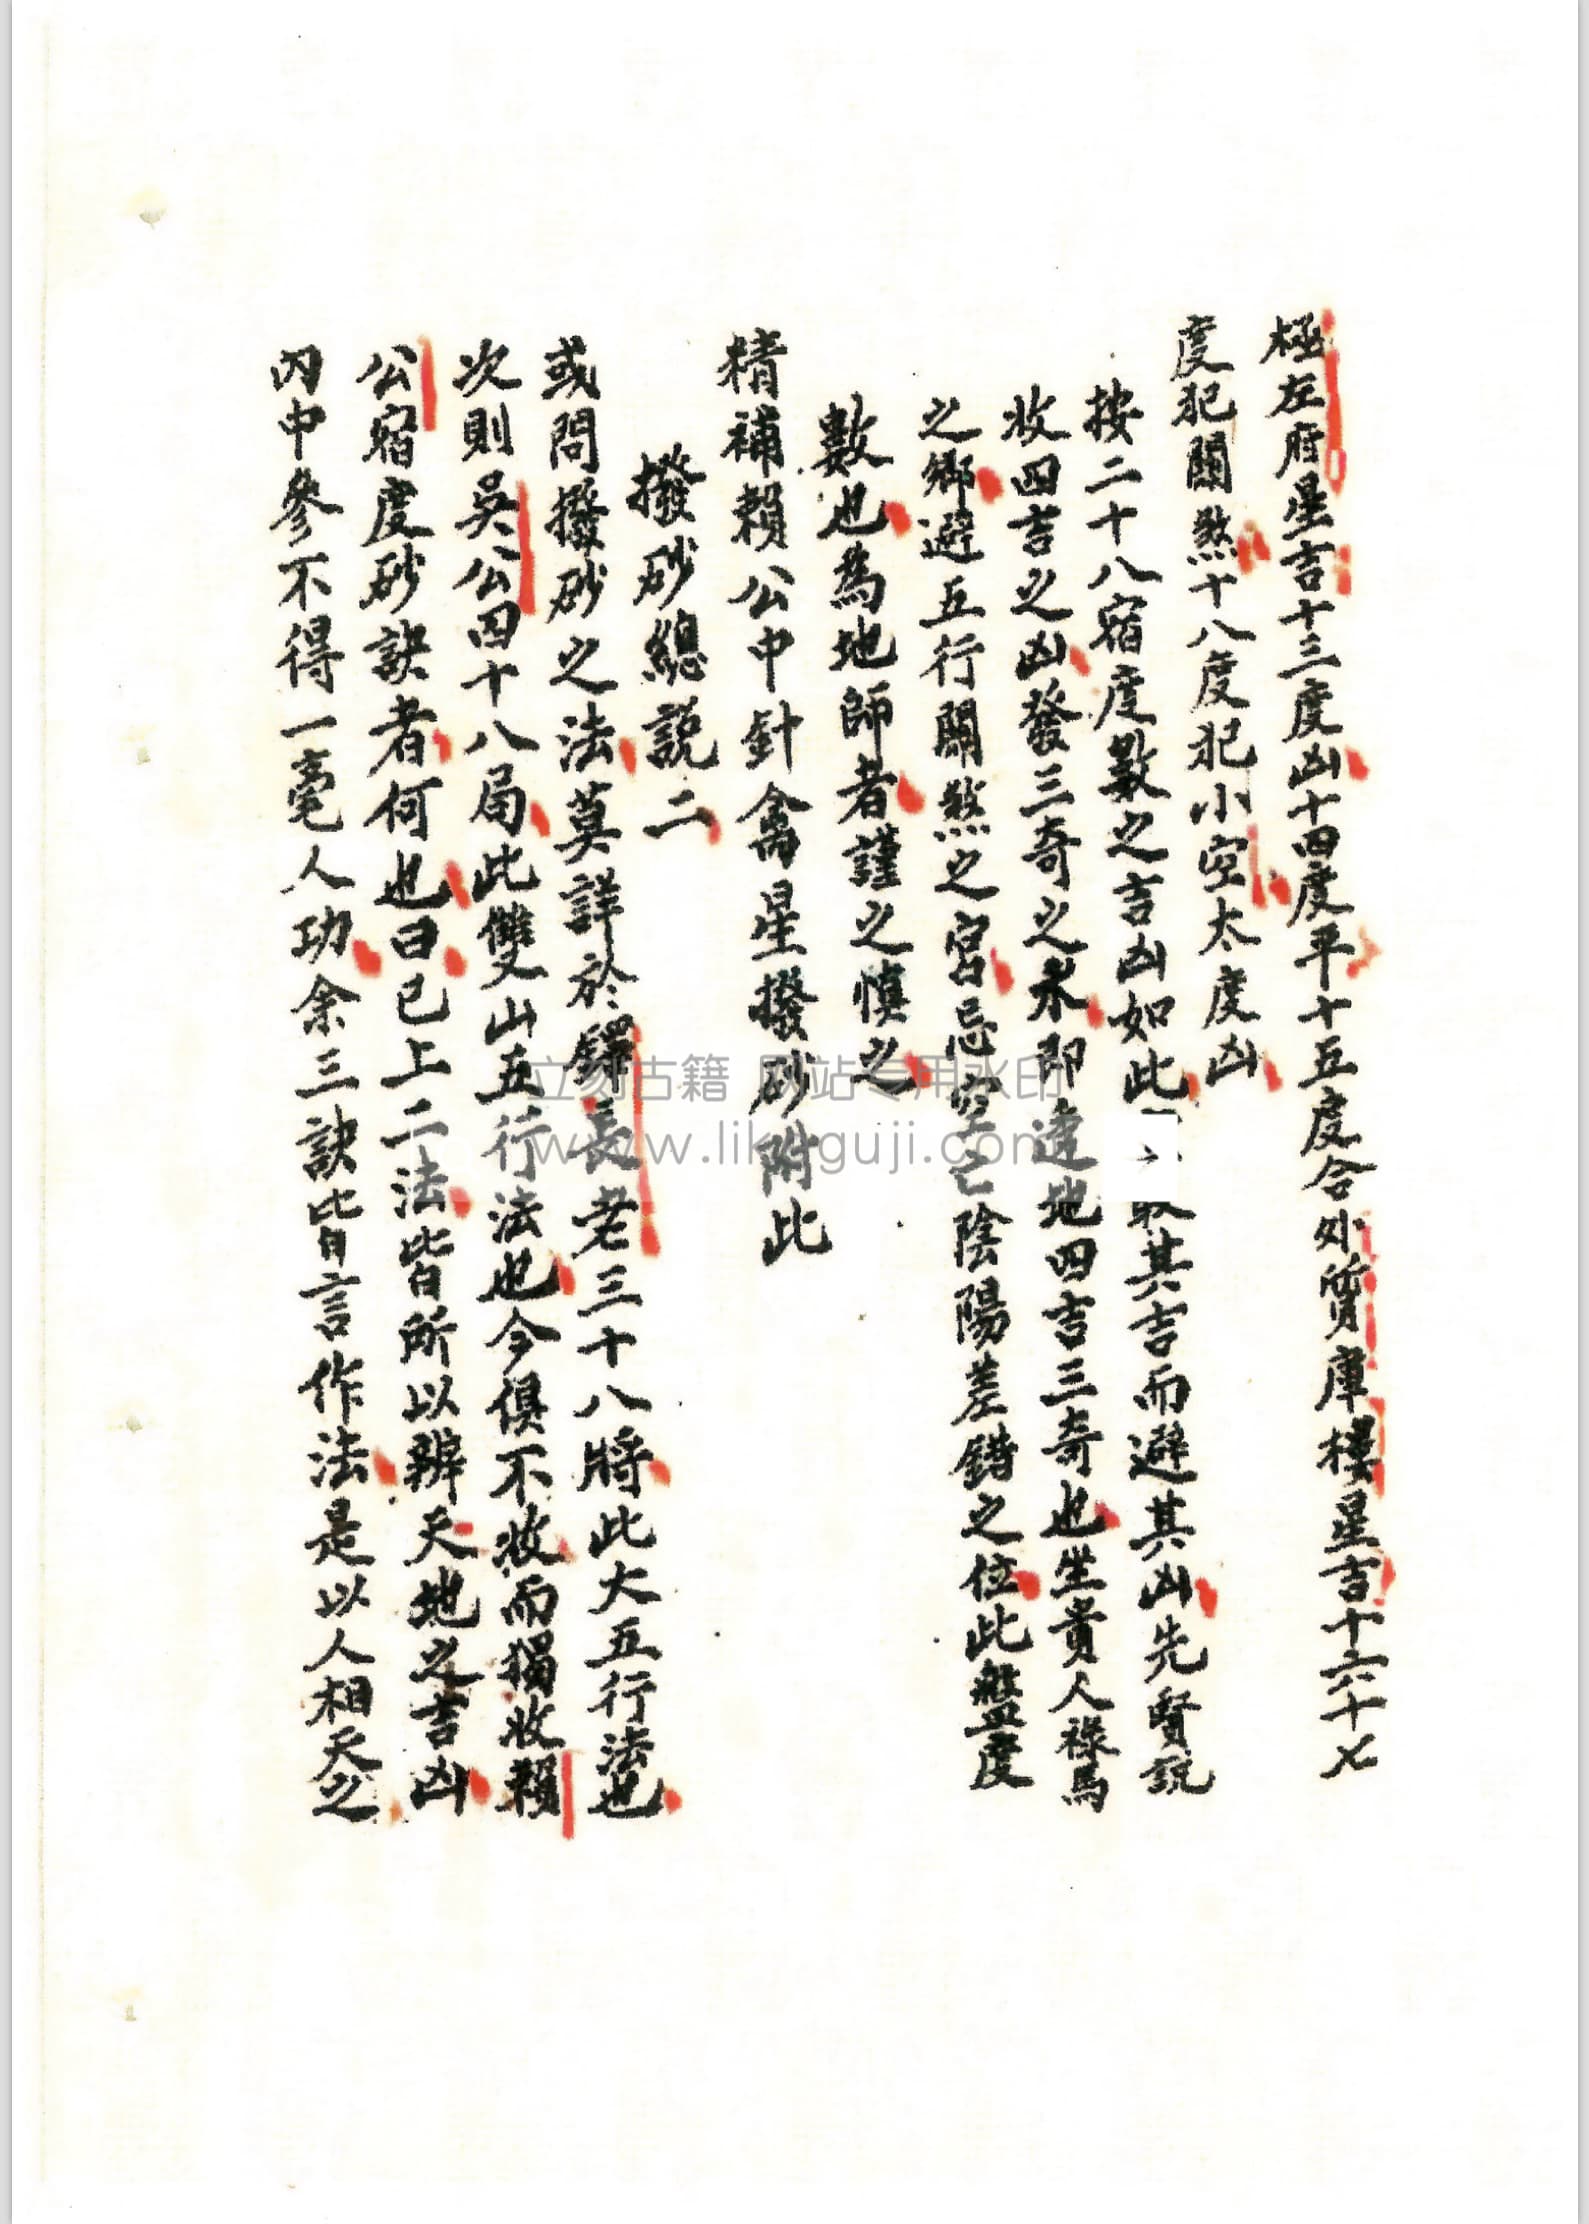 極左府星吉十三度凶十四度平十五度合外質庫樓星吉十六十七
度犯關煞十八度犯小空太度凶
按二十八宿度數之吉凶如此取其吉而避其凶先賢說
收四吉之凶發三奇之永即逹地四吉三奇也坐貴人祿馬
之鄉避五行關煞之宮忌空亡陰陽差錯之位此盤度
數也為地師者謹之慎之
精補賴公中針禽星撥砂附此
撥砂總說二
或問撥砂之法莫詳於鐸長老三十八將此大五行法也
次則吳公四十八局此雙山五行法也今俱不收而揭收賴
公宿度砂訣者何也曰已上二法皆所以辨天地之吉凶
內中參不得一毫人功余三訣皆言作法是以人相天之
立刻古籍 网站专用水印
www.likeguji.com